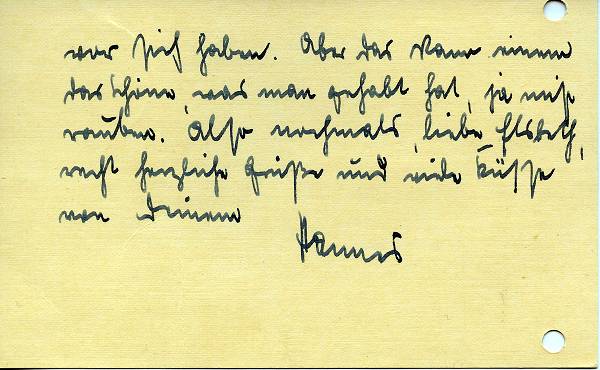 vor sich haben. Aber das kann einem
das Schöne, was man gehabt hat, ja nicht
rauben. Also nochmals, liebe Elsbeth,
recht herzliche Grüße und viele Küsse
von Deinem
Hannes